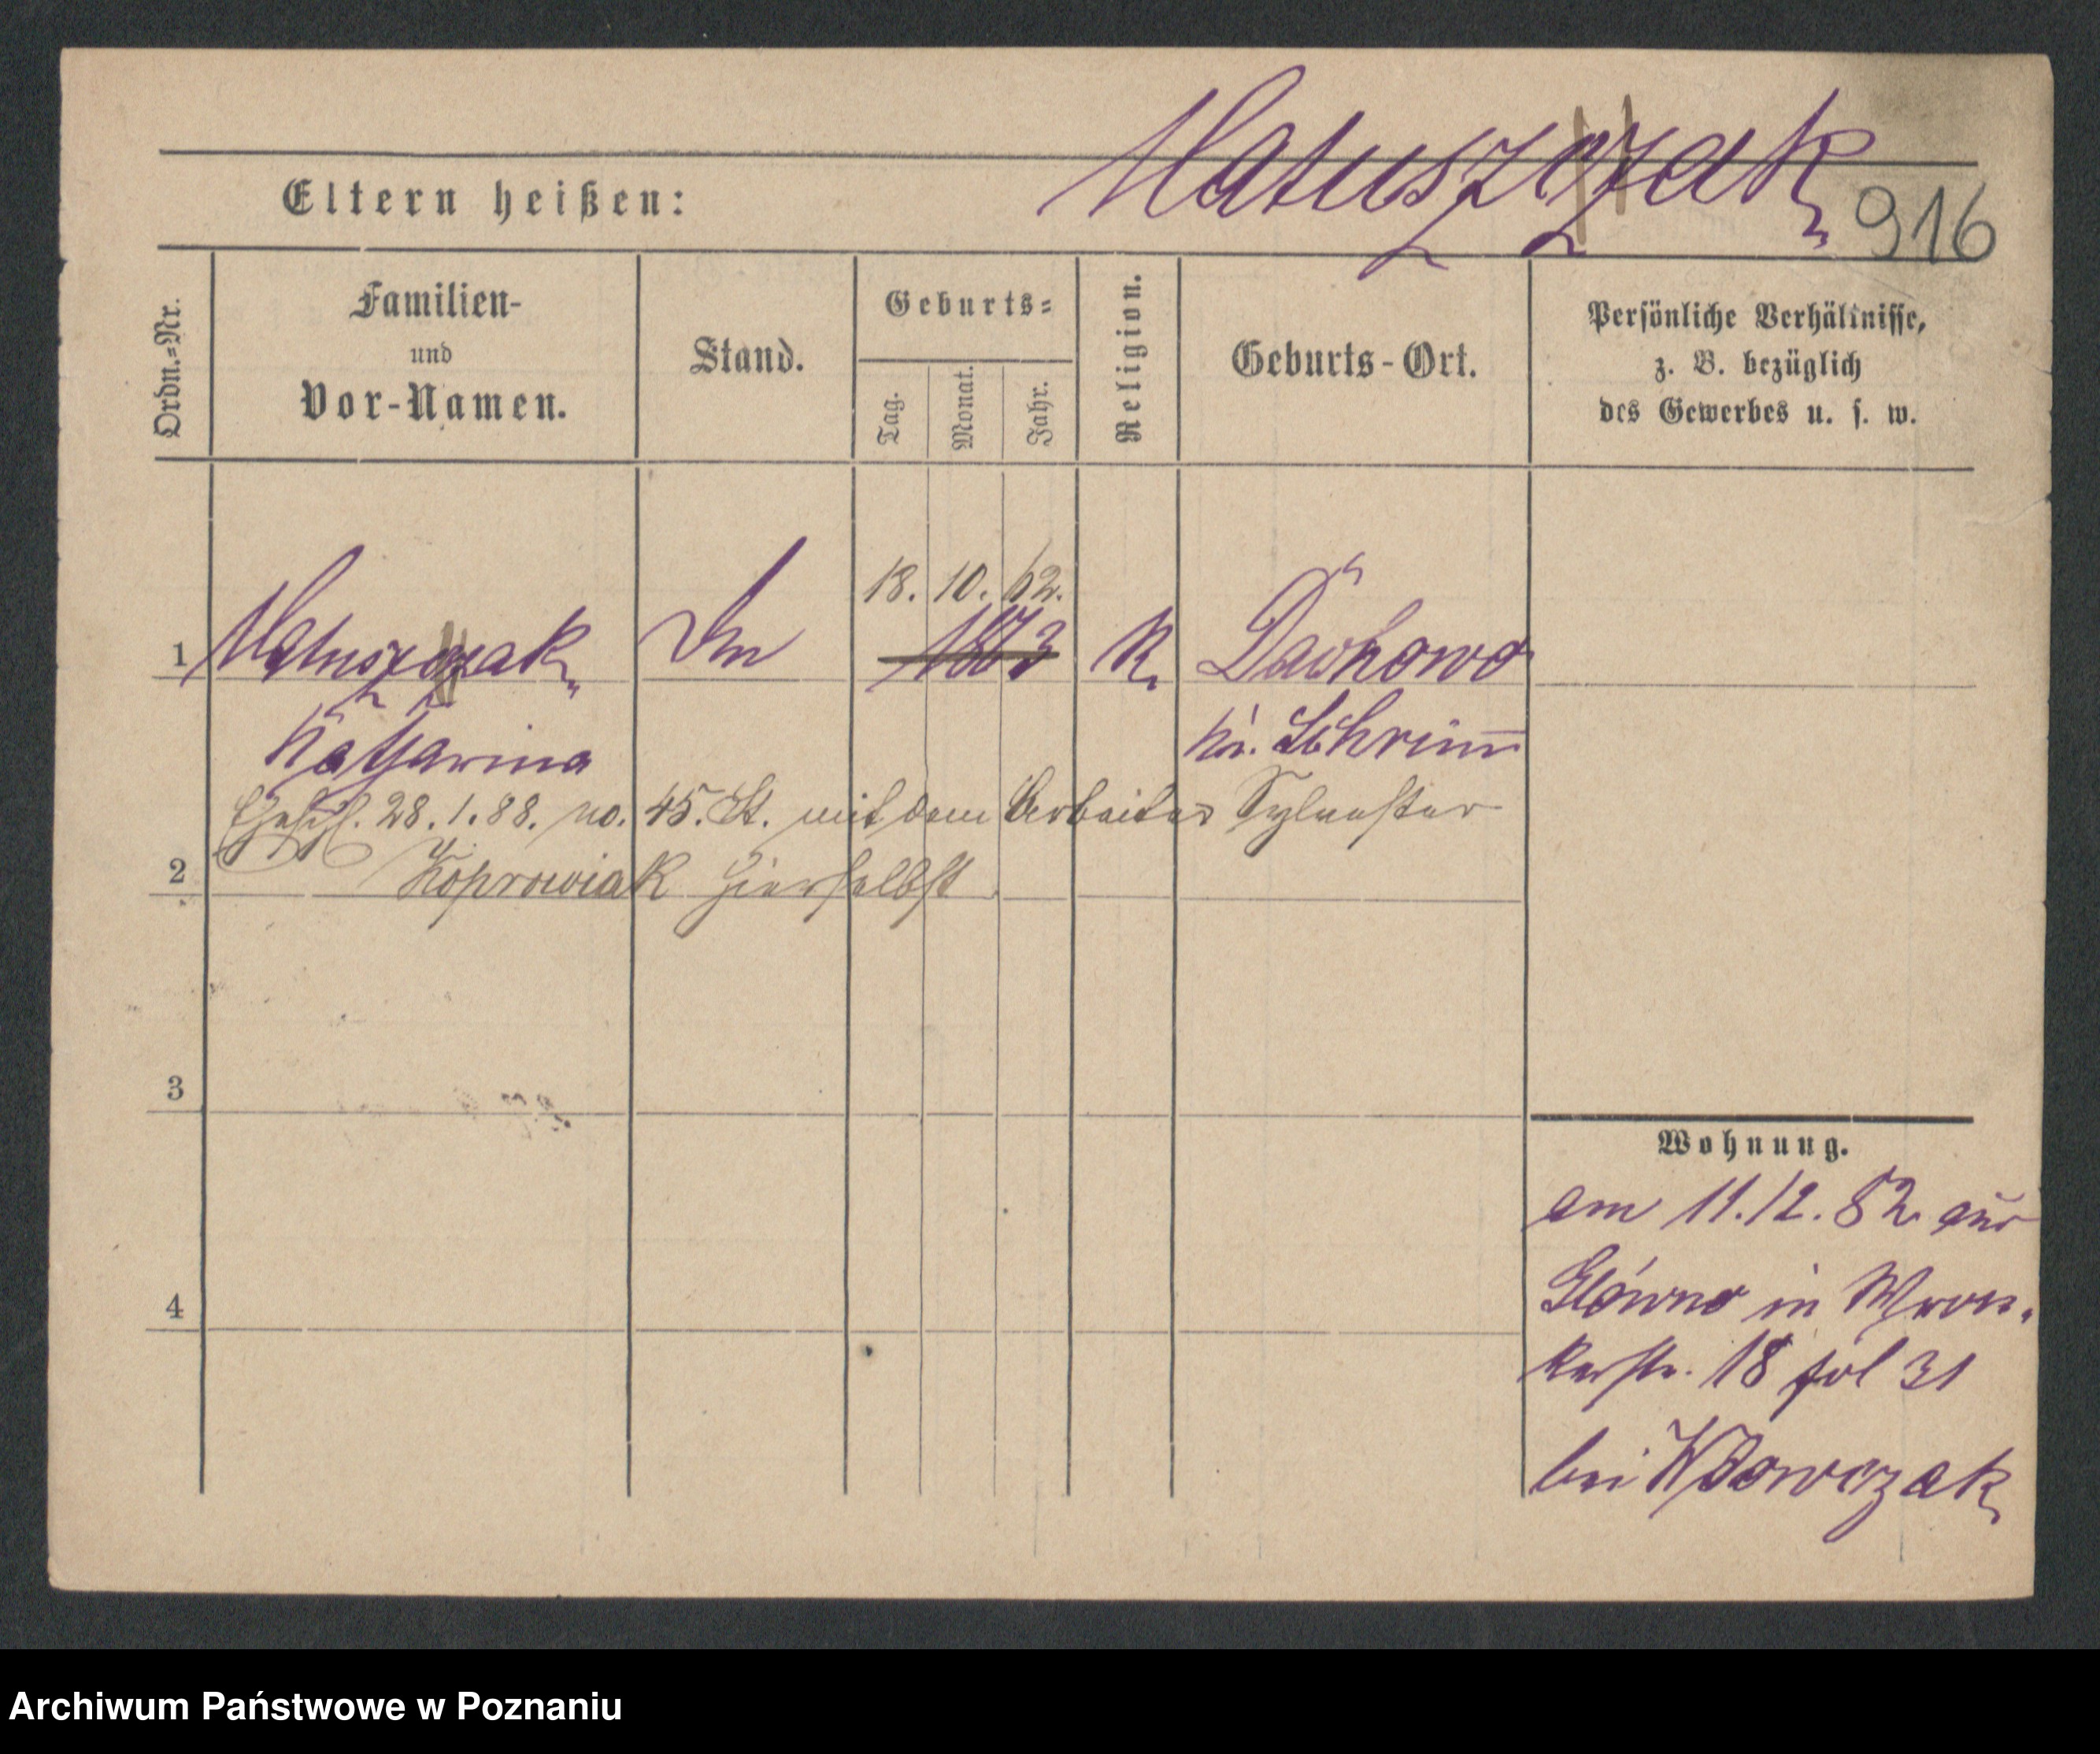 Matuszczak
916
Eltern heißen:
Ordn.=Nr.
Familien-
und
Vor-Namen.
Stand.
Geburts=
Tag.
Monat.
Jahr.
Religion.
Geburts-Ort.
Persönliche Verhältnisse,
z. B. bezüglich
des Gewerbes u. s. w.
18. 10. 62.
1 Matuszczak 1863 K. Dachowo
Katharina Kr. Schrimm
Ehschl. 28.1.88. no. 45. St. mit dem Arbeiter Sylvester
2 Koprowiak hierselbst
3
4
Wohnung.
am 11.12.82 aus
Glówno in Wron.
kerstr. 18 fol 31
bei Wdowczak
Archiwum Państwowe w Poznaniu